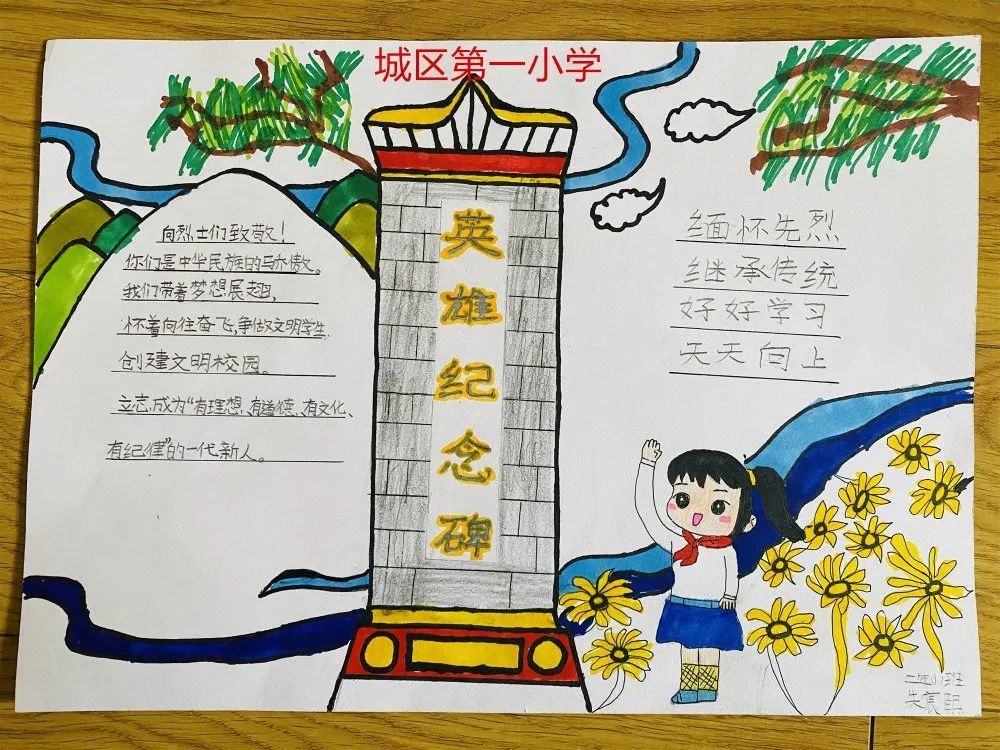 城区第一小学
向烈士们致敬!
你们是中华民族的骄傲。
我们带着梦想展翅,
怀着向往奋飞,争做文明学生
创建文明校园。
立志成为“有理想、有道德、有文化、
有纪律”的一代新人。
英雄纪念碑
缅怀先烈
继承传统
好好学习
天天向上